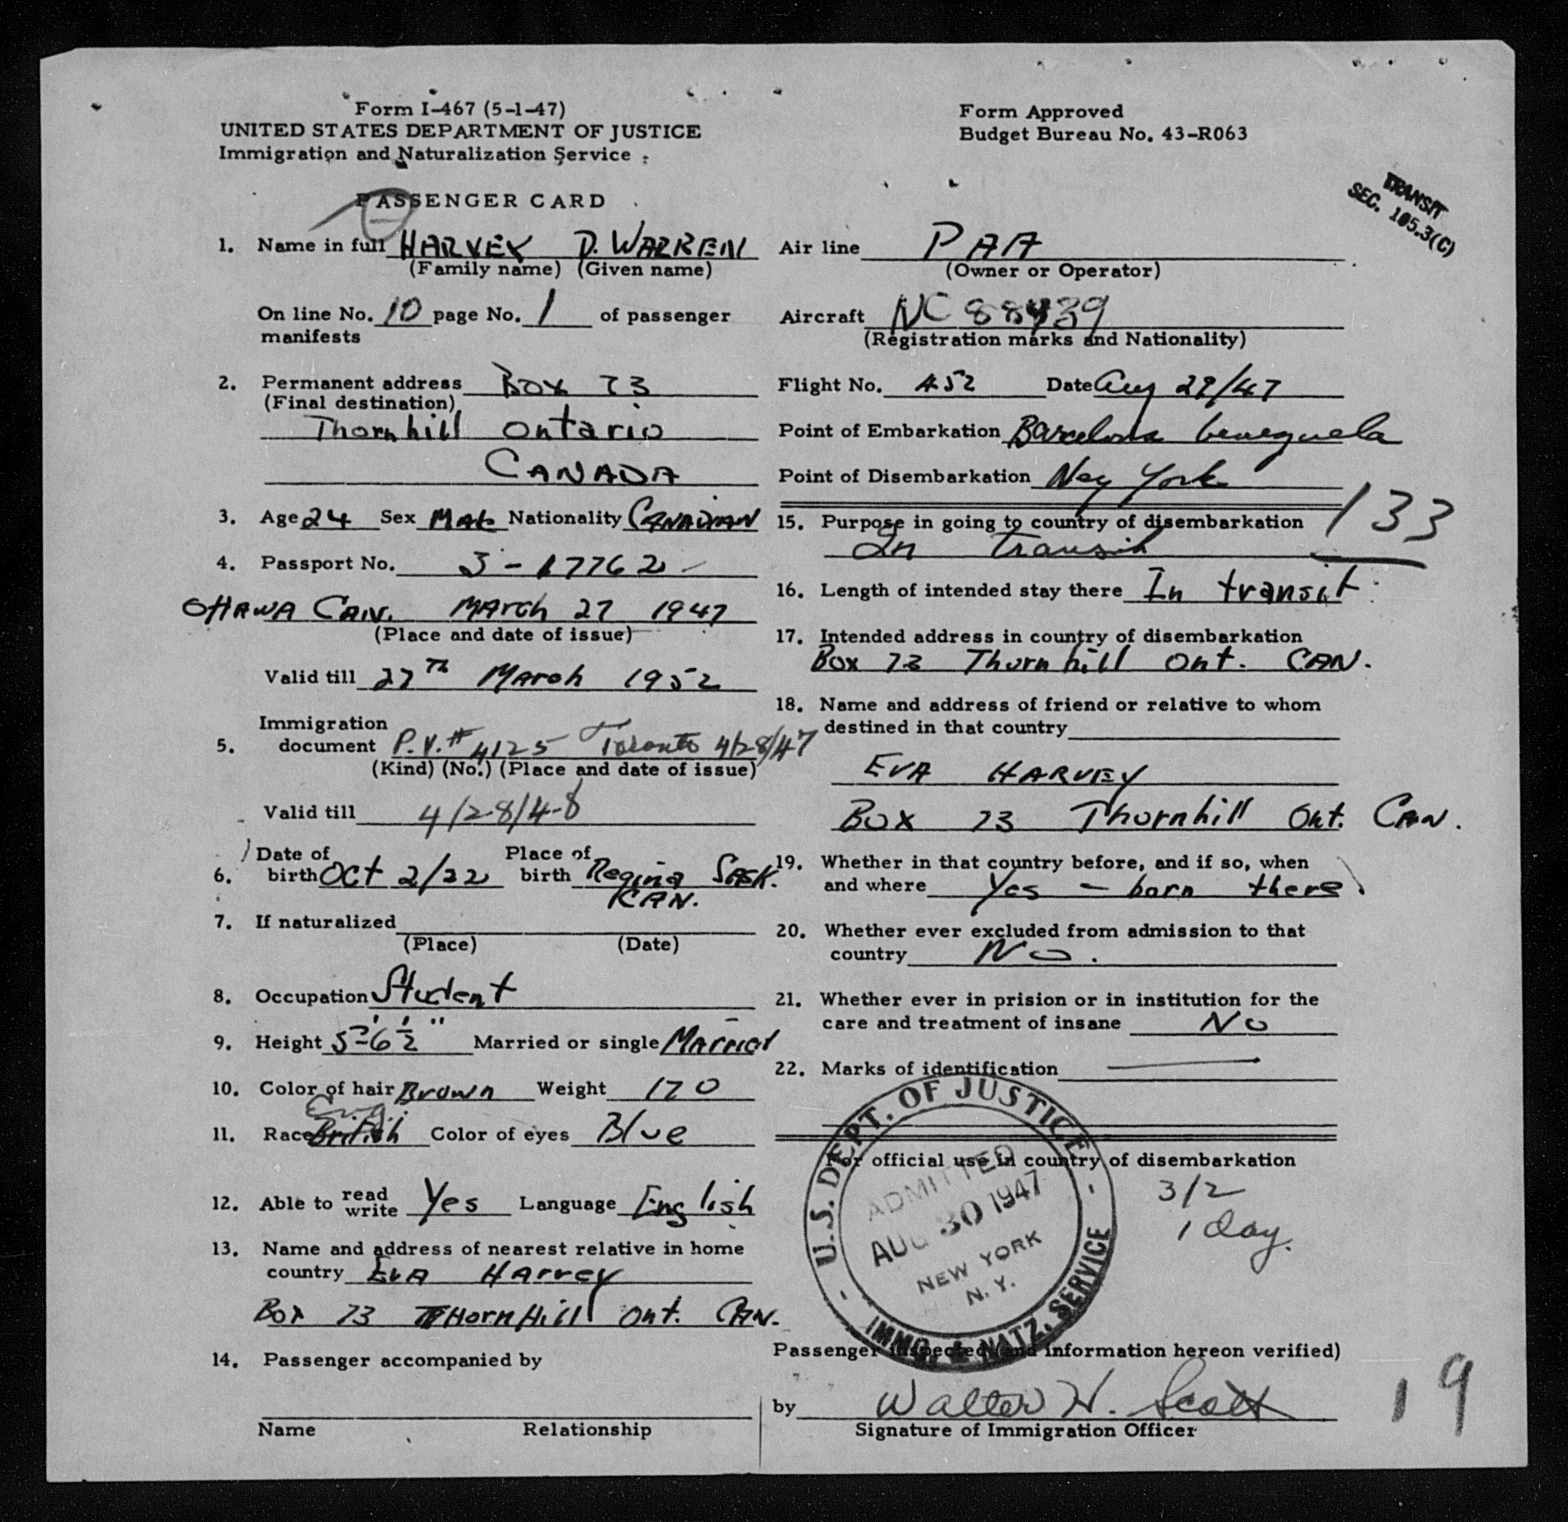 Form I-467 (5-1-47)
UNITED STATES DEPARTMENT OF JUSTICE
Immigration and Naturalization Service
Form Approved
Budget Bureau No. 43-R063
PASSENGER CARD
TRANSIT
SEC. 105.3(C)
1. Name in full HARVEY D. WARREN
(Family name) (Given name)
On line No. 10 page No. 1 of passenger
manifests
2. Permanent address Box 73
(Final destination)
Thornhill Ontario
CANADA
3. Age 24 Sex Male Nationality CANADIAN
4. Passport No. 5-17762
OTTAWA CAN. MARCH 27 1947
(Place and date of issue)
Valid till 27th March 1952
5. Immigration
document P.V.# 4125 Toronto 4/28/47
(Kind) (No.) (Place and date of issue)
Valid till 4/28/48
6. Date of
birth Oct 2/22 Place of
birth Regina SASK.
CAN.
7. If naturalized
(Place) (Date)
8. Occupation Student
9. Height 5'-6½" Married or single Married
10. Color of hair Brown Weight 170
Eng.
11. Race British Color of eyes Blue
12. Able to read
write Yes Language English
13. Name and address of nearest relative in home
country EVA Harvey
Box 73 THornHill Ont. CAN.
14. Passenger accompanied by
Name Relationship
Air line PAA
(Owner or Operator)
Aircraft NC 88439
(Registration marks and Nationality)
Flight No. 452 Date Aug 29/47
Point of Embarkation Barcelona Venezuela
Point of Disembarkation New York
133
15. Purpose in going to country of disembarkation
In transit
16. Length of intended stay there In transit
17. Intended address in country of disembarkation
Box 73 Thornhill Ont. CAN.
18. Name and address of friend or relative to whom
destined in that country
EVA HARVEY
Box 73 Thornhill Ont. CAN.
19. Whether in that country before, and if so, when
and where Yes - born there
20. Whether ever excluded from admission to that
country No.
21. Whether ever in prision or in institution for the
care and treatment of insane No
22. Marks of identification
For official use in country of disembarkation
U.S. DEPT. OF JUSTICE
ADMITTED
AUG 30 1947
NEW YORK
N.Y.
IMMG. & NATZ. SERVICE
3/2
1 day.
Passenger inspected (and information hereon verified)
by Walter H. Scott
Signature of Immigration Officer
19